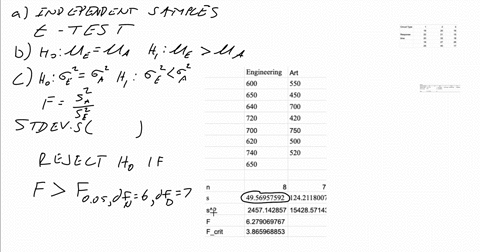 a) INDEPENDENT SAMPLES
t-TEST
b) H₀: μ_E = μ_A H₁: μ_E > μ_A
c) H₀: σ_E² = σ_A² H₁: σ_E² < σ_A²
F = s_A² / s_E²
STDEV.S( )
REJECT H₀ IF
F > F_0.05, df_N = 6, df_D = 7
Engineering Art
600 550
650 450
640 700
720 420
700 750
620 500
740 520
650
n 8 7
s 49.56957592 124.2118007
s^2 2457.142857 15428.57143
F 6.279069767
F_crit 3.865968853